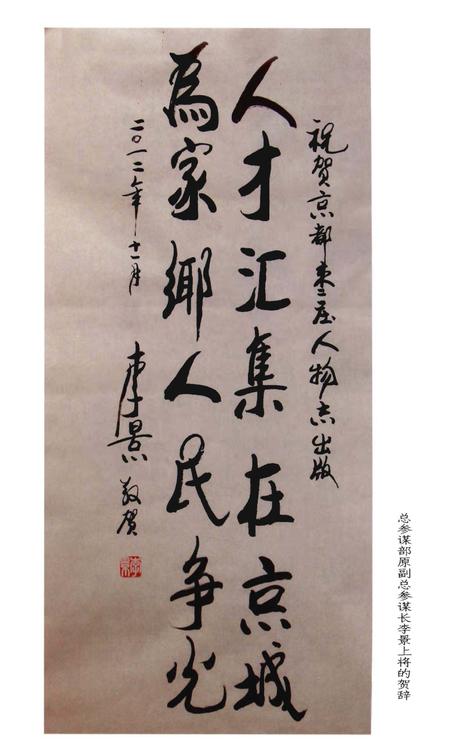 祝贺京都枣庄人物志出版
人才汇集在京城
为家乡人民争光
二〇一二年十一月
李景 敬贺
李景
总参谋部原副总参谋长李景上将的贺辞